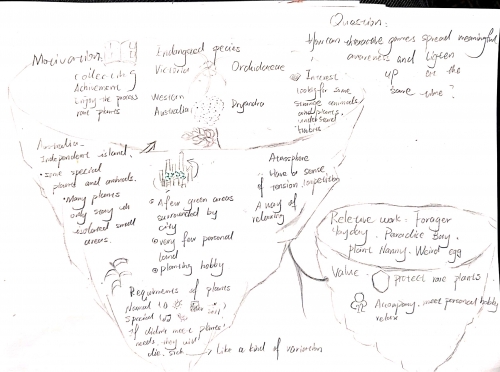 Question:
How can interactive games spread meaningful
awareness and liven
up at the
same time?
Motivation:
collecting
Achievement
Enjoy the process
rare plants
Endangered species
Victoria
Orchidaceae
Western
Australia
Dryandra
Interest
looking for some
strange animals
and plants.
understand
Australia
Independent island.
some special
plants and animals.
Many plants
only stay with
isolated small
areas.
A few green areas
surrounded by
city
very few personal
land
planting hobby
Atmosphere
Have a sense
of tension, competition
A way of
relaxing
Requirments of plants
Normal
Special
If didn't meet plants'
needs they will
die, sick
Like a kind of variation
Relative work: Forager
Yuyday. Paradise Bay.
Plant Nanny. Weird egg
Value
protect rare plants
Accompany. meet personal hobby
relax